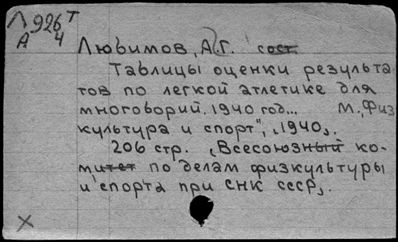 Л 926 Т
А 4
Любимов, А.Г. сост.
Таблицы оценки результа
тов по легкой атлетике для
многоворий. 1940 год... М., „Физ
культура и спорт", „1940„.
206 стр. „Всесоюзный ко-
митет по делам физкультуры
и спорта при СНК СССР„.
X